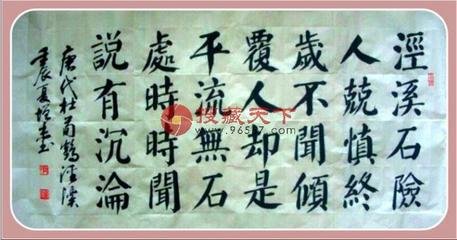 涇溪石險
人兢慎終
歲不聞傾
覆人却是
平流無石
處時時聞
說有沉淪
唐代杜荀鶴涇溪
壬辰夏
投藏天下